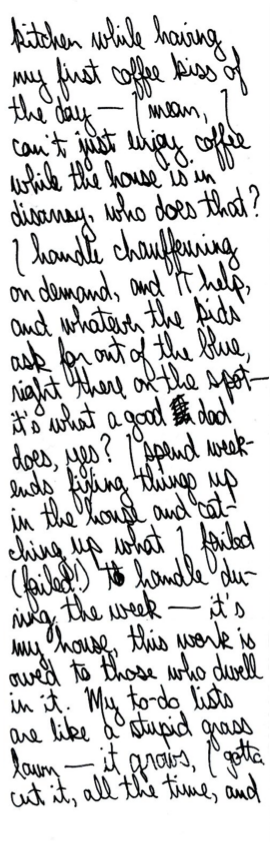 kitchen while having
my first coffee kiss of
the day — I mean, I
can't just enjoy coffee
while the house is in
disarray, who does that?
I handle chauffeuring
on demand, and IT help,
and whatever the kids
ask for out of the blue,
right there on the spot—
it's what a good dad
does, yes? I spend week-
ends fixing things up
in the house and cat-
ching up what I failed
(failed!) to handle du-
ring the week — it's
my house, this work is
owed to those who dwell
in it. My to-do lists
are like a stupid grass
lawn — it grows, I gotta
cut it, all the time, and